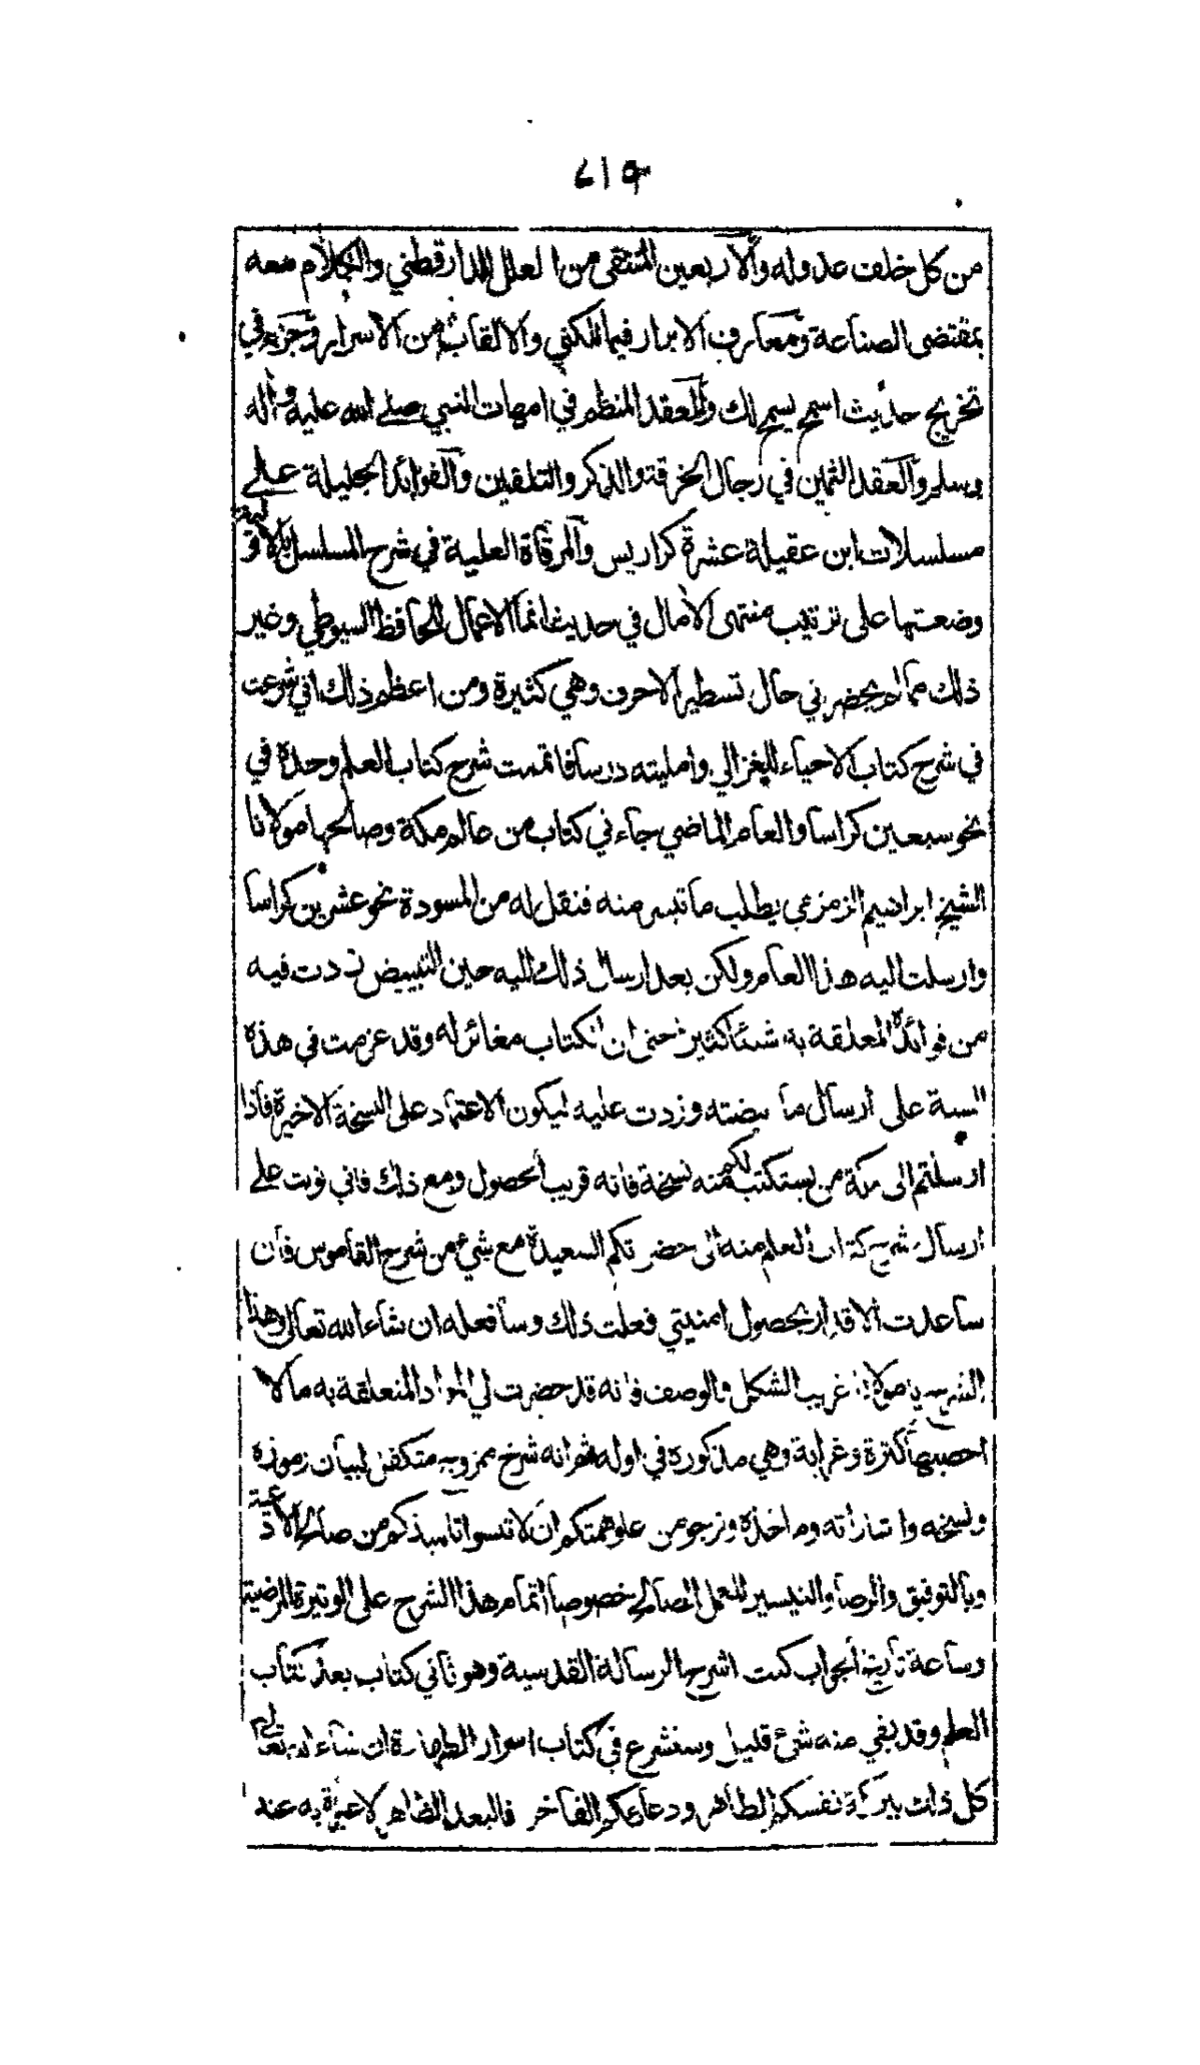 من كل خلف عدوله والاربعين المنتقى من العلل للدارقطني والكلام معه
بمقتضى الصناعة ومعارف الابرار فيما للكنى والالقاب من الاسرار وجزء في
تخريج حديث اسمح يسمح لك والعقد المنظم في امهات النبي صلى الله عليه واله
وسلم والعقد الثمين في رجال الخرقة والذكر والتلقين والفوائد الجليلة على
مسلسلات ابن عقيلة عشرة كراريس والمرقاة العلية في شرح المسلسل بالاولية
وضعتها على ترتيب منتهى الامال في حديث انما الاعمال للحافظ السيوطي وغير
ذلك مما لم يحضرني حال تسطير الاحرف وهي كثيرة ومن اعظم ذلك اني شرعت
في شرح كتاب الاحياء للغزالي وامليته درسا فاتممت شرح كتاب العلم وحده في
نحو سبعين كراسا والعام الماضي جاءني كتاب من عالم مكة وصالحها مولانا
الشيخ ابراهيم الزمزمي يطلب ما تيسر منه فنقل له من المسودة نحو عشرين كراسا
وارسلت اليه هذا العام ولكن بعد ارسال ذلك اليه حين التبييض زدت فيه
من فوائده المعلقة به شيئا كثيرا حتى ان الكتاب مغائر له وقد عزمت في هذه
السنة على ارسال ما بيضته وزدت عليه ليكون الاعتماد على النسخة الاخيرة فاذا
ارسلتم الى مكة من يستكتب لكم منه نسخة فانه قريب الحصول ومع ذلك فاني نويت على
ارسال شرح كتاب العلم منه الى حضرتكم السعيدة مع شيء من شرح القاموس فان
ساعدت الاقدار بحصول امنيتي فعلت ذلك وسافعله ان شاء الله تعالى وهذا
الشرح يا مولانا غريب الشكل والوصف فانه قد حضرت لي المواد المتعلقة به ما لا
احصيها كثرة وغرابة وهي مذكورة في اوله ثم انه شرح ممزوج متكفل لبيان رموزه
ونسخه واشاراته وماخذه ونرجو من علو همتكم ان لا تنسوانا من صالح الادعية
وبالتوفيق والرضا والتيسير للعمل الصالح خصوصا اتمام هذا الشرح على الوتيرة المرضية
وساعة تاريخ الجواب كنت اشرح الرسالة القدسية وهو ثاني كتاب بعد كتاب
العلم وقد بقي منه شيء قليل وسنشرع في كتاب اسرار الطهارة ان شاء الله تعالى
كل ذلك ببركة نفسكم الطاهر ودعاءكم الفاخر فالبعد الظاهر لا عبرة به عند